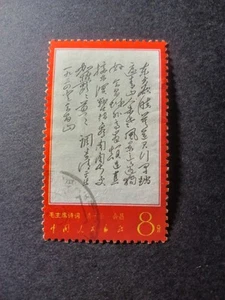 东方欲晓莫道君行早踏
遍青山人未老风景这边独
好 会昌城外高峰颠连直
接东溟战士指看南粤更
加郁郁葱葱 调寄清平乐
毛主席诗词 清平乐 会昌
中国人民邮政 8分